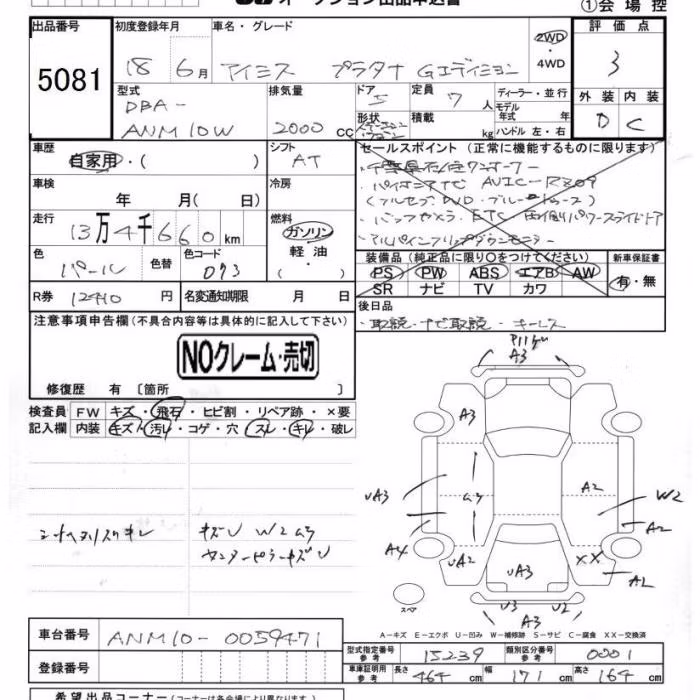 ①会 場 控
出品番号 初度登録年月 車名・グレード 2WD 評 価 点
5081 18 6月 アイシス プラタナ Gエディション ・4WD 3
型式 排気量 ドア 定員 ディーラー・並行 外 装 内 装
DBA- 5 7 人 モデル年式 年 D C
ANM10W 2000 cc 形状 積載 kg ハンドル 左・右
車歴 シフト セールスポイント (正常に機能するものに限ります)
自家用・( ) AT
車検 冷房 ・パイオニアナビ AVIC-RZ09
年 月( 日) DVD・ブルー
走行 燃料 ・バックカメラ・ETC・両側パワースライドドア
13万4千660km ガソリン ・アルパインフリップダウンモニター
軽 油 装備品(純正品に限り○をつけてください) 新車保証書
色 色替 色コード ( ) PS PW ABS エアB AW 有・無
パール 073 SR ナビ TV カワ
R券 12410 円 名変通知期限 月 日 後日品
注意事項申告欄(不具合内容等は具体的に記入して下さい) ・取説・ナビ取説・キーレス
NOクレーム・売切
修復歴 有〔箇所 〕
検査員 FW キズ・飛石・ヒビ割・リペア跡・×要
記入欄 内装 キズ・汚レ・コゲ・穴・スレ・キレ・破レ
A3
A3
UA3 A2 W2
A2
A4 UA2 UA3 XX A2
シートヘタリスレキレ キズU W2
センターピラーキズU
スペア
U3 A3 U2
A－キズ E－エクボ U－凹み W－補修跡 S－サビ C－腐食 XX－交換済
車台番号 ANM10-0059471
登録番号
型式指定番号 参考 15239 類別区分番号 参考 0001
車庫証明用 参考 長さ 464 cm 幅 171 cm 高さ 164 cm
希望出品コーナー